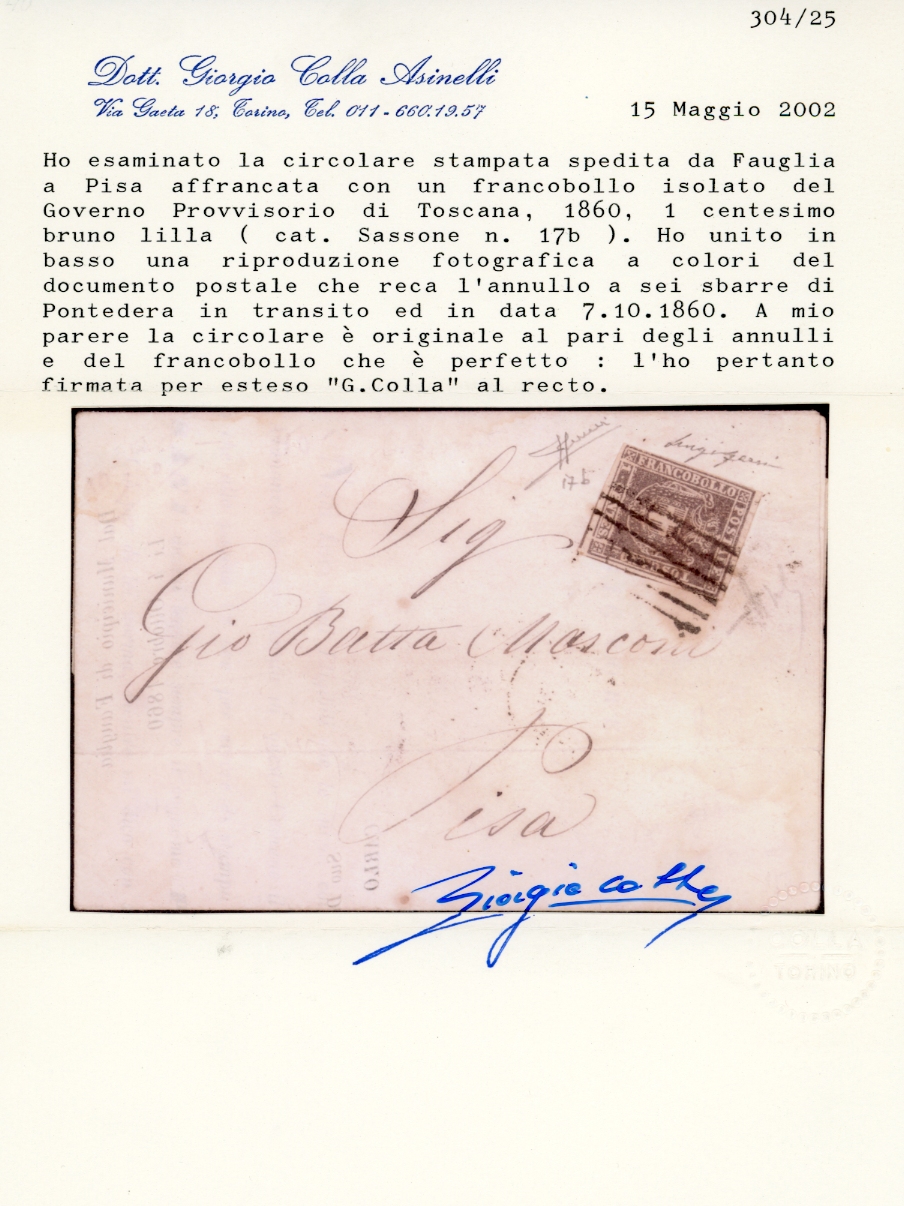 304/25
Dott. Giorgio Colla Asinelli
Via Gaeta 18, Torino, Tel. 011-660.19.57
15 Maggio 2002
Ho esaminato la circolare stampata spedita da Fauglia
a Pisa affrancata con un francobollo isolato del
Governo Provvisorio di Toscana, 1860, 1 centesimo
bruno lilla ( cat. Sassone n. 17b ). Ho unito in
basso una riproduzione fotografica a colori del
documento postale che reca l'annullo a sei sbarre di
Pontedera in transito ed in data 7.10.1860. A mio
parere la circolare è originale al pari degli annulli
e del francobollo che è perfetto : l'ho pertanto
firmata per esteso "G.Colla" al recto.
17b
FRANCOBOLLO
Sig
Gio Batta Masconi
Pisa
Dal Municipio di Fauglia
1860
CARLO
Giorgio Colla